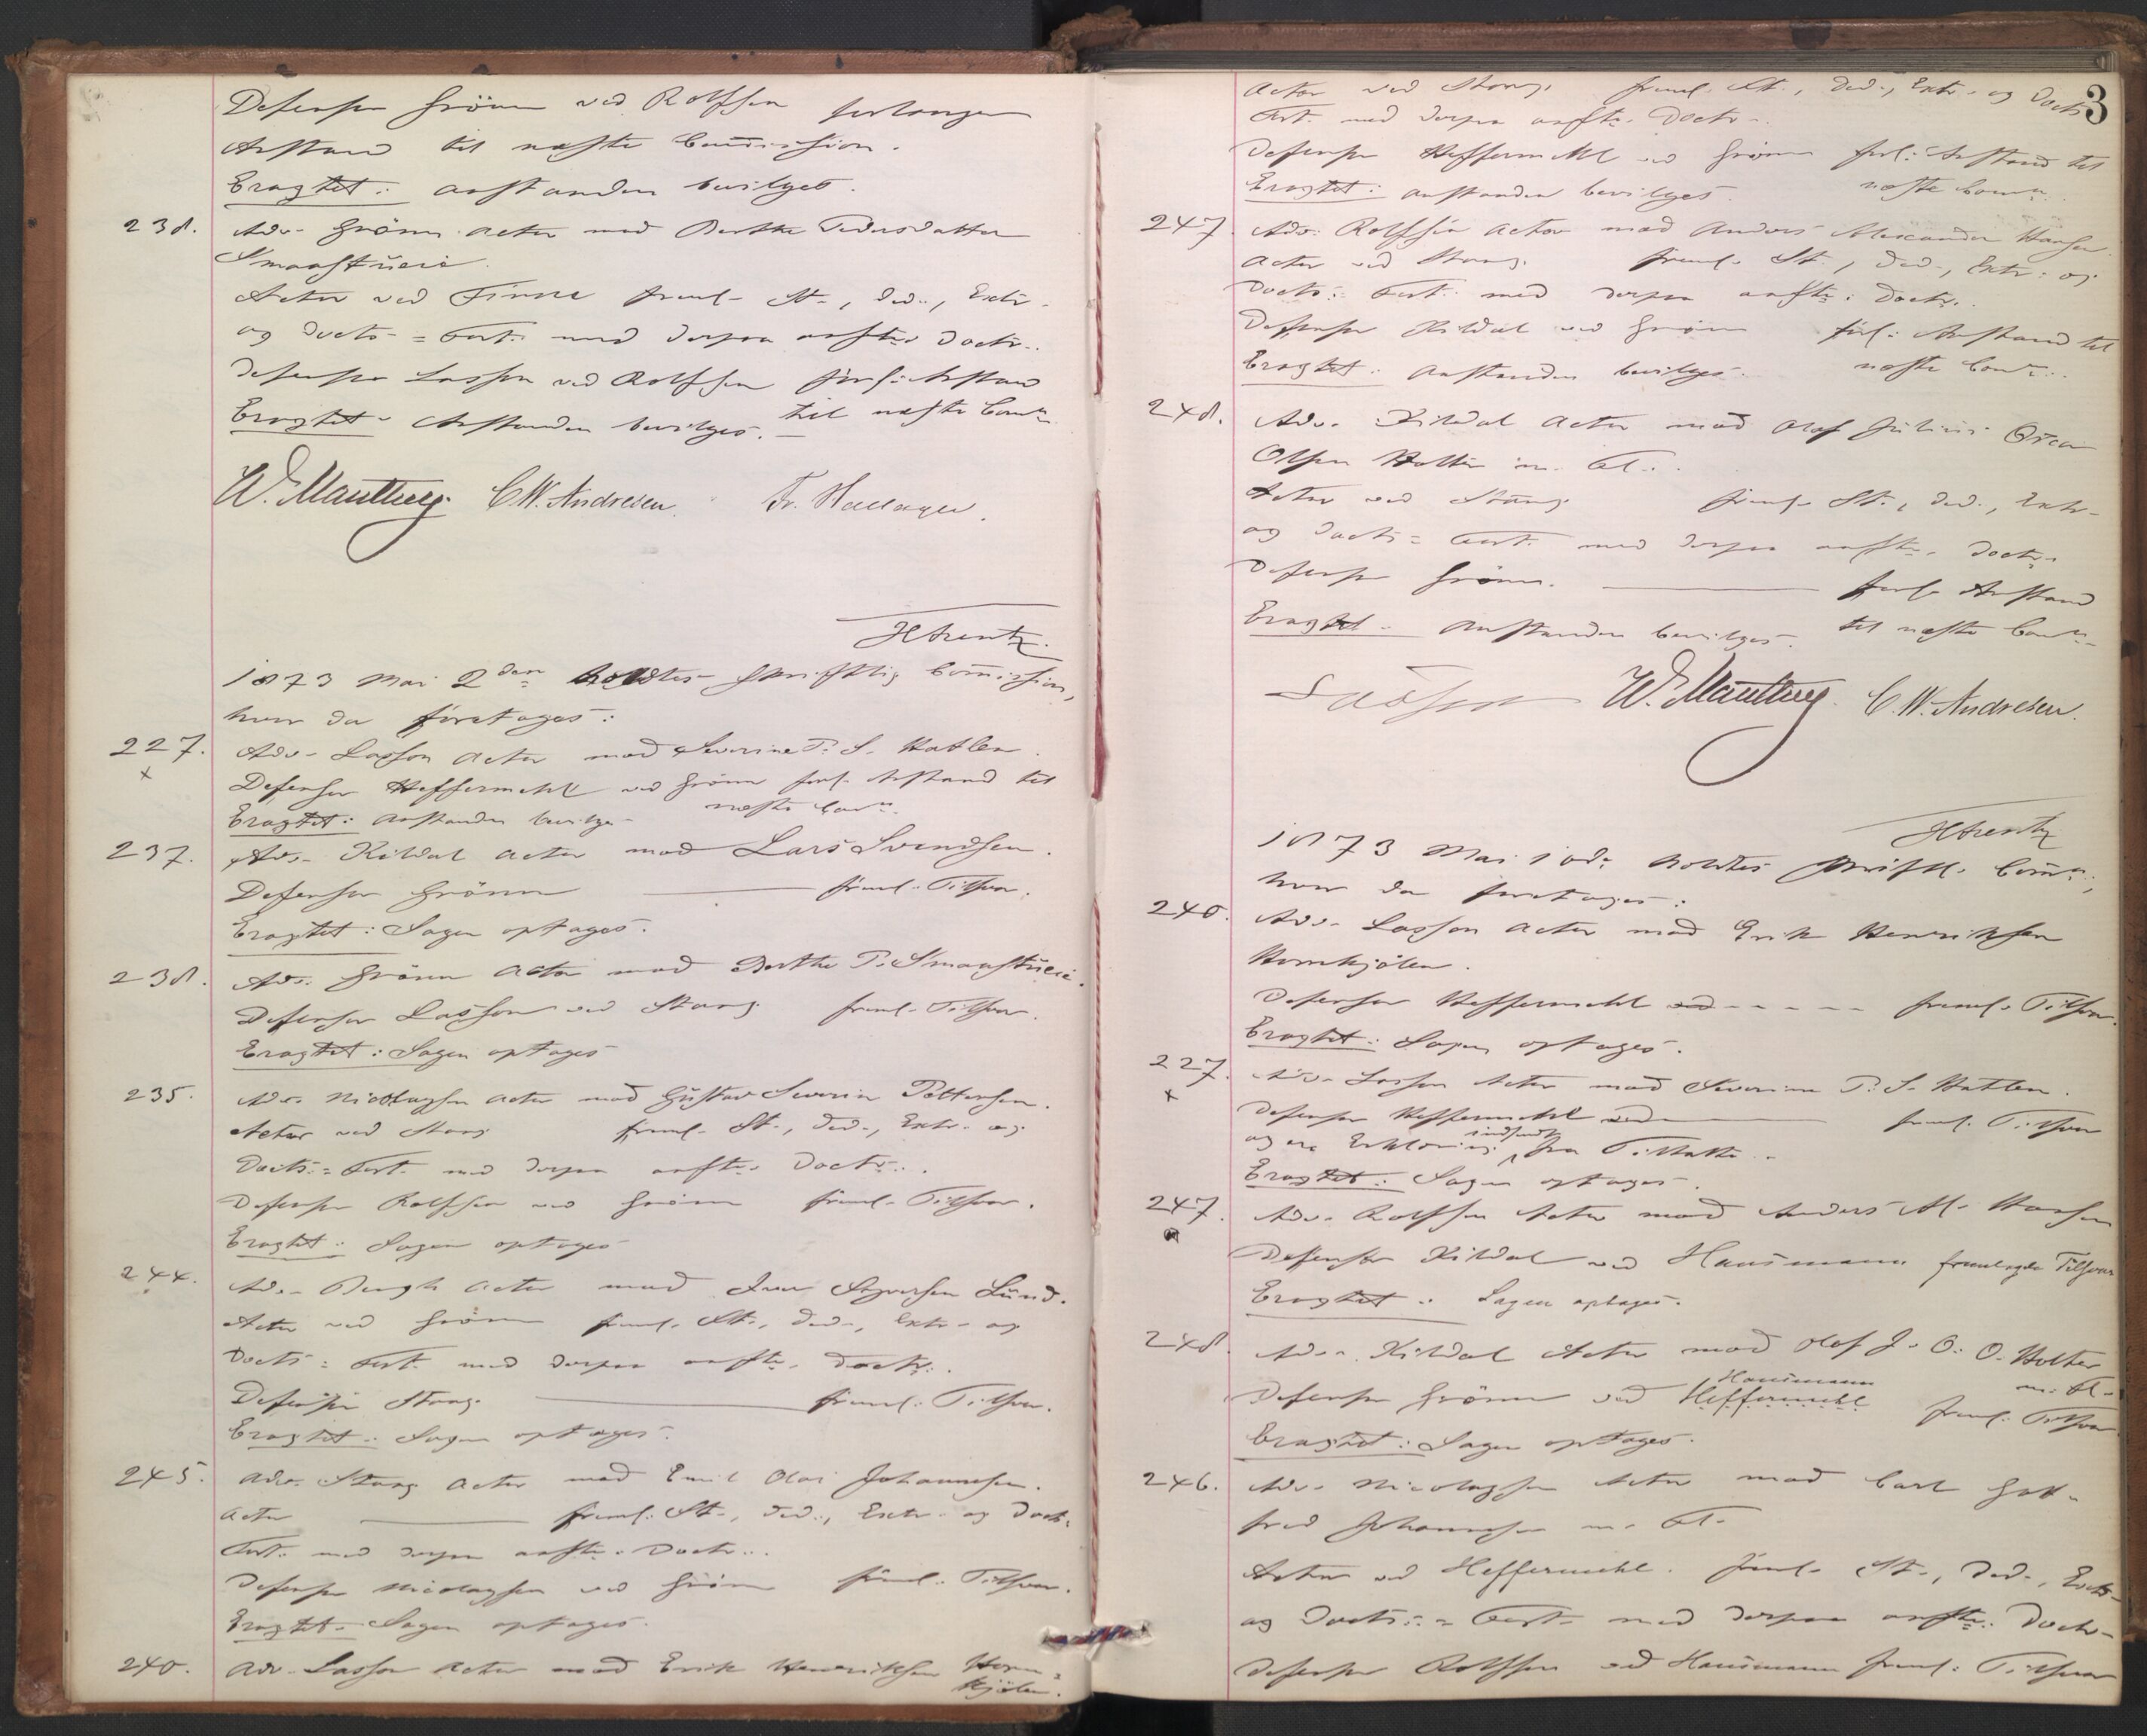 Defensor Grönn ved Rolfsen forlanger
Anstand til næste Commission.
Eragtet: Anstanden bevilges.
238. Adv. Grönn Actor mod Berthe Pedersdatter
Smaastueie.
Actor ved Finne freml. St., Ded., Extr.
og Docts = Cert. med derpaa anfte. Doctr.
Defensor Lasson ved Rolfsen forl. Anstand
til næste Comn.
Eragtet. Anstanden bevilges.
C.W. Andresen. Fr. Hallager.
1873 Mai 2den holdtes skriftlig Commission,
hvor da foretoges:
227. Adv. Lasson Actor mod Severine P. S. Hatlen.
x
Defensor Heffermehl ved Grönn forl. Anstand til
næste Comn.
Eragtet: Anstanden bevilges
237. Adv. Kildal Actor mod Lars Svendsen.
Defensor Grönn — freml. Tilsvar.
Eragtet: Sagen optages.
238. Adv. Grönn Actor mod Berthe P. Smaastueie.
Defensor Lasson ved Stang freml. Tilsvar.
Eragtet: Sagen optages
235. Adv. Nicolaysen Actor mod Gustav Severin Pettersen.
Actor ved Stang freml. St., Ded., Extr. og
Docts = Cert. med derpaa anfte. Doctr.
Defensor Rolfsen ved Grönn freml. Tilsvar.
Eragtet: Sagen optages
244. Adv. Bergh Actor mod Iver Syversen Lund.
Actor ved Grönn freml. St., Ded., Extr. og
Docts = Cert. med derpaa anfte. Doctr.
Defensor Stang — freml. Tilsvar.
Eragtet: Sagen optages.
245. Adv. Stang Actor mod Emil Olai Johannesen.
Actor — freml. St., Ded., Extr. og Docts
Cert. med derpaa anfte. Doctr.
Defensor Nicolaysen ved Grönn freml. Tilsvar.
Eragtet. Sagen optages.
240. Adv. Lasson Actor mod Erik Henriksen Horn-
kjölen.
3
Actor ved Stang. freml. St., Ded., Extr. og Docts
Cert. med derpaa anfte. Doctr.
Defensor Heffermehl ved Grönn forl. Anstand til
næste Comn.
Eragtet: Anstanden bevilges.
247. Adv. Rolfsen Actor mod Anders Alexander Hansen.
Actor ved Stang. freml. St., Ded., Extr. og
Docts. Cert. med derpaa anfte. Doctr.
Defensor Kildal ved Grönn forl. Anstand til
næste Comn.
Eragtet. Anstanden bevilges.
248. Adv. Kildal Actor mod Olaf Julius Oscar
Olsen Holter m. Fl.
Actor ved Stang freml. St., Ded., Extr.
og Docts = Cert. med derpaa anfte. Doctr.
Defensor Grönn. — forl. Anstand
til næste Comn.
Eragtet. Anstanden bevilges.
C.W. Andresen.
1873 Mai 10de holdtes skriftl. Comn.,
hvor da foretoges:
240. Adv. Lasson Actor mod Erik Henriksen
Hornkjölen.
Defensor Heffermehl ved - - - - - freml. Tilsvar.
Eragtet: Sagen optages.
227. Adv. Lasson Actor mod Severine P. S. Hatlen.
x
Defensor Heffermehl ved — freml. Tilsvar
og en Erklæring indsendt fra Tiltalte.
Eragtet: Sagen optages.
247. Adv. Rolfsen Actor mod Anders Al. Hansen
Defensor Kildal ved Hansmann fremlagde Tilsvar
Eragtet: Sagen optages.
248. Adv. Kildal Actor mod Olaf J. O. O. Holter
m. Fl.
Hansmann
Defensor Grönn ved Heffermehl freml. Tilsvar
Eragtet: Sagen optages.
246. Adv. Nicolaysen Actor mod Carl Gott-
fred Johannesen m. Fl.
Actor ved Heffermehl. freml. St., Ded., Extr.
og Docts = Cert. med derpaa anfte. Doctr.
Defensor Rolfsen ved Hansmann freml. Tilsvar